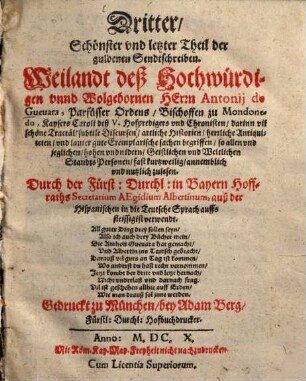 Dritter/
Schönster vnd letzter Theil der
guldenen Sendtschreiben.
Weilandt deß Hochwürdi-
gen vnnd Wolgebornen HErrn Antonij de
Gueuara, Parfüsser Ordens/ Bischoffen zu Mondone-
do, Kaysers Caroli deß V. Hofpredigers vnd Chronisten/ darinn vil
schöne Tractät/ subtile Discursen/ artliche Historien/ herrliche Antiqui-
teten/ vnd lauter gute Exemplarische sachen begriffen/ so allen vnd
jeglichen/ hohen vnd nidern/ Geistlichen vnd Weltlichen
Standts Personen/ fast kurtzweilig/ annemblich
vnd nutzlich zulesen.
Durch der Fürst: Durchl: in Bayern Hoff-
raths Secretarium AEgidium Albertinum, auß der
Hispanischen in die Teutsche Sprach auffs
fleissigist verwendt.
All guter Ding drey sollen seyn/
Also ich auch drey Bücher mein/
Die Anthoni Gueuara hat gemacht/
Vnd Albertin ins Teutsch gebracht/
Jetzt kombt der dritt vnd letzt hernach/
Gedruckt zu München/ bey Adam Berg/
Fürstl: Durchl: Hofbuchdrucker.
Anno: M. DC. X.
Mit Röm. Kay. May. Freyheit nicht nachzudrucken.
Cum Licentia Superiorum.